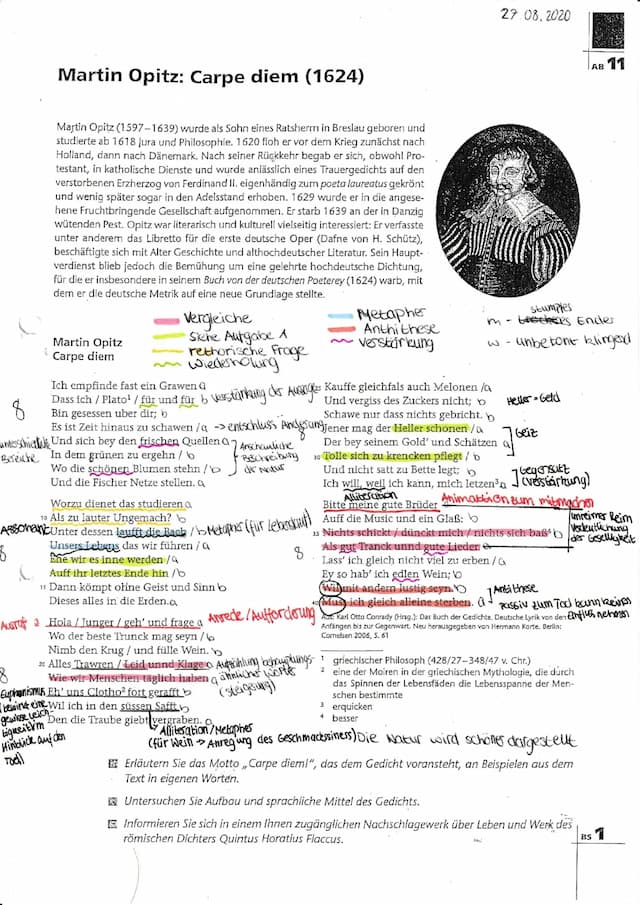 27.08.2020
AB 11
Martin Opitz: Carpe diem (1624)
Martin Opitz (1597–1639) wurde als Sohn eines Ratsherrn in Breslau geboren und
studierte ab 1618 Jura und Philosophie. 1620 floh er vor dem Krieg zunächst nach
Holland, dann nach Dänemark. Nach seiner Rückkehr begab er sich, obwohl Pro-
testant, in katholische Dienste und wurde anlässlich eines Trauergedichts auf den
verstorbenen Erzherzog von Ferdinand II. eigenhändig zum poeta laureatus gekrönt
und wenig später sogar in den Adelsstand erhoben. 1629 wurde er in die angese-
hene Fruchtbringende Gesellschaft aufgenommen. Er starb 1639 an der in Danzig
wütenden Pest. Opitz war literarisch und kulturell vielseitig interessiert: Er verfasste
unter anderem das Libretto für die erste deutsche Oper (Dafne von H. Schütz),
beschäftigte sich mit Alter Geschichte und althochdeutscher Literatur. Sein Haupt-
verdienst blieb jedoch die Bemühung um eine gelehrte hochdeutsche Dichtung,
für die er insbesondere in seinem Buch von der deutschen Poeterey (1624) warb, mit
dem er die deutsche Metrik auf eine neue Grundlage stellte.
Vergleiche
siehe Aufgabe 1
rethorische Frage
Wiederholung
Metapher
Anthithese
Verstärkung
stumpfes
m - Ender
w - unbetont klingend
Martin Opitz
Carpe diem
Ich empfinde fast ein Grawen a
Dass ich / Plato¹ / für und für b Verstärkung der Aussage
8
Bin gesessen uber dir; b
Es ist Zeit hinaus zu schawen / a -> entschluss Änderung
unterschiedliche Bereiche
Und sich bey den frischen Quellen a
In dem grünen zu ergehn / b
Wo die schönen Blumen stehn / b
Und die Fischer Netze stellen. a
Anschauliche Beschreibung der Natur
Worzu dienet das studieren a
10 Als zu lauter Ungemach? b
Assonanz
Unter dessen laufft die Bach / b Metapher (für Lebenslauf)
8
Unsers Lebens das wir führen / a
Ehe wir es inne werden / a
Auff ihr letztes Ende hin / b
15 Dann kömpt ohne Geist und Sinn b
Dieses alles in die Erden. a
Ausruf
Hola / Junger / geh' und frage a Anrede / Aufforderung
Wo der beste Trunck mag seyn / b
Nimb den Krug / und fülle Wein. b
20 Alles Trawren / Leid unnd Klage a
8
Wie wir Menschen täglich haben a
Eh' uns Clotho² fort gerafft b
Wil ich in den süssen Safft b
Den die Traube giebt vergraben. a
Aufzählung
ähnlicher Worte
(steigerung)
Euphemismus
Alliteration / Metapher
(für Wein -> Anregung des Geschmacksinnes)
25 Kauffe gleichfals auch Melonen / a
Und vergiss des Zuckers nicht; b
Heller = Geld
Schawe nur dass nichts gebricht. b
8
Jener mag der Heller schonen / a
Der bey seinem Gold' und Schätzen a
Geiz
30 Tolle sich zu krencken pflegt / b
Und nicht satt zu Bette legt; b
Ich will, weil ich kann, mich letzen³ a
Gegensatz
(Verstärkung)
Alliteration
Bitte meine gute Brüder Animation zum mitmachen
Auff die Music und ein Glaß: b
35 Nichts schickt / dünckt mich / nichts sich baß⁴ b
8
Als gut Tranck unnd gute Lieder a
unreiner Reim
Verdeutlichung
der Geselligkeit
Lass' ich gleich nicht viel zu erben / a
Ey so hab' ich edlen Wein; b
Wil mit andern lustig seyn. b
Antithese
40 Muss ich gleich alleine sterben. a -> passiv zum Tod kann keinen
Einfluss nehmen
Aus: Karl Otto Conrady (Hrsg.): Das Buch der Gedichte. Deutsche Lyrik von den
Anfängen bis zur Gegenwart. Neu herausgegeben von Hermann Korte. Berlin:
Cornelsen 2006, S. 61
1 griechischer Philosoph (428/27–348/47 v. Chr.)
2 eine der Moiren in der griechischen Mythologie, die durch
das Spinnen der Lebensfäden die Lebensspanne der Men-
schen bestimmte
3 erquicken
4 besser
Die Natur wird schöner dargestellt
Erläutern Sie das Motto „Carpe diem!", das dem Gedicht voransteht, an Beispielen aus dem
Text in eigenen Worten.
Untersuchen Sie Aufbau und sprachliche Mittel des Gedichts.
Informieren Sie sich in einem Ihnen zugänglichen Nachschlagewerk über Leben und Werk des
römischen Dichters Quintus Horatius Flaccus.
BS 1